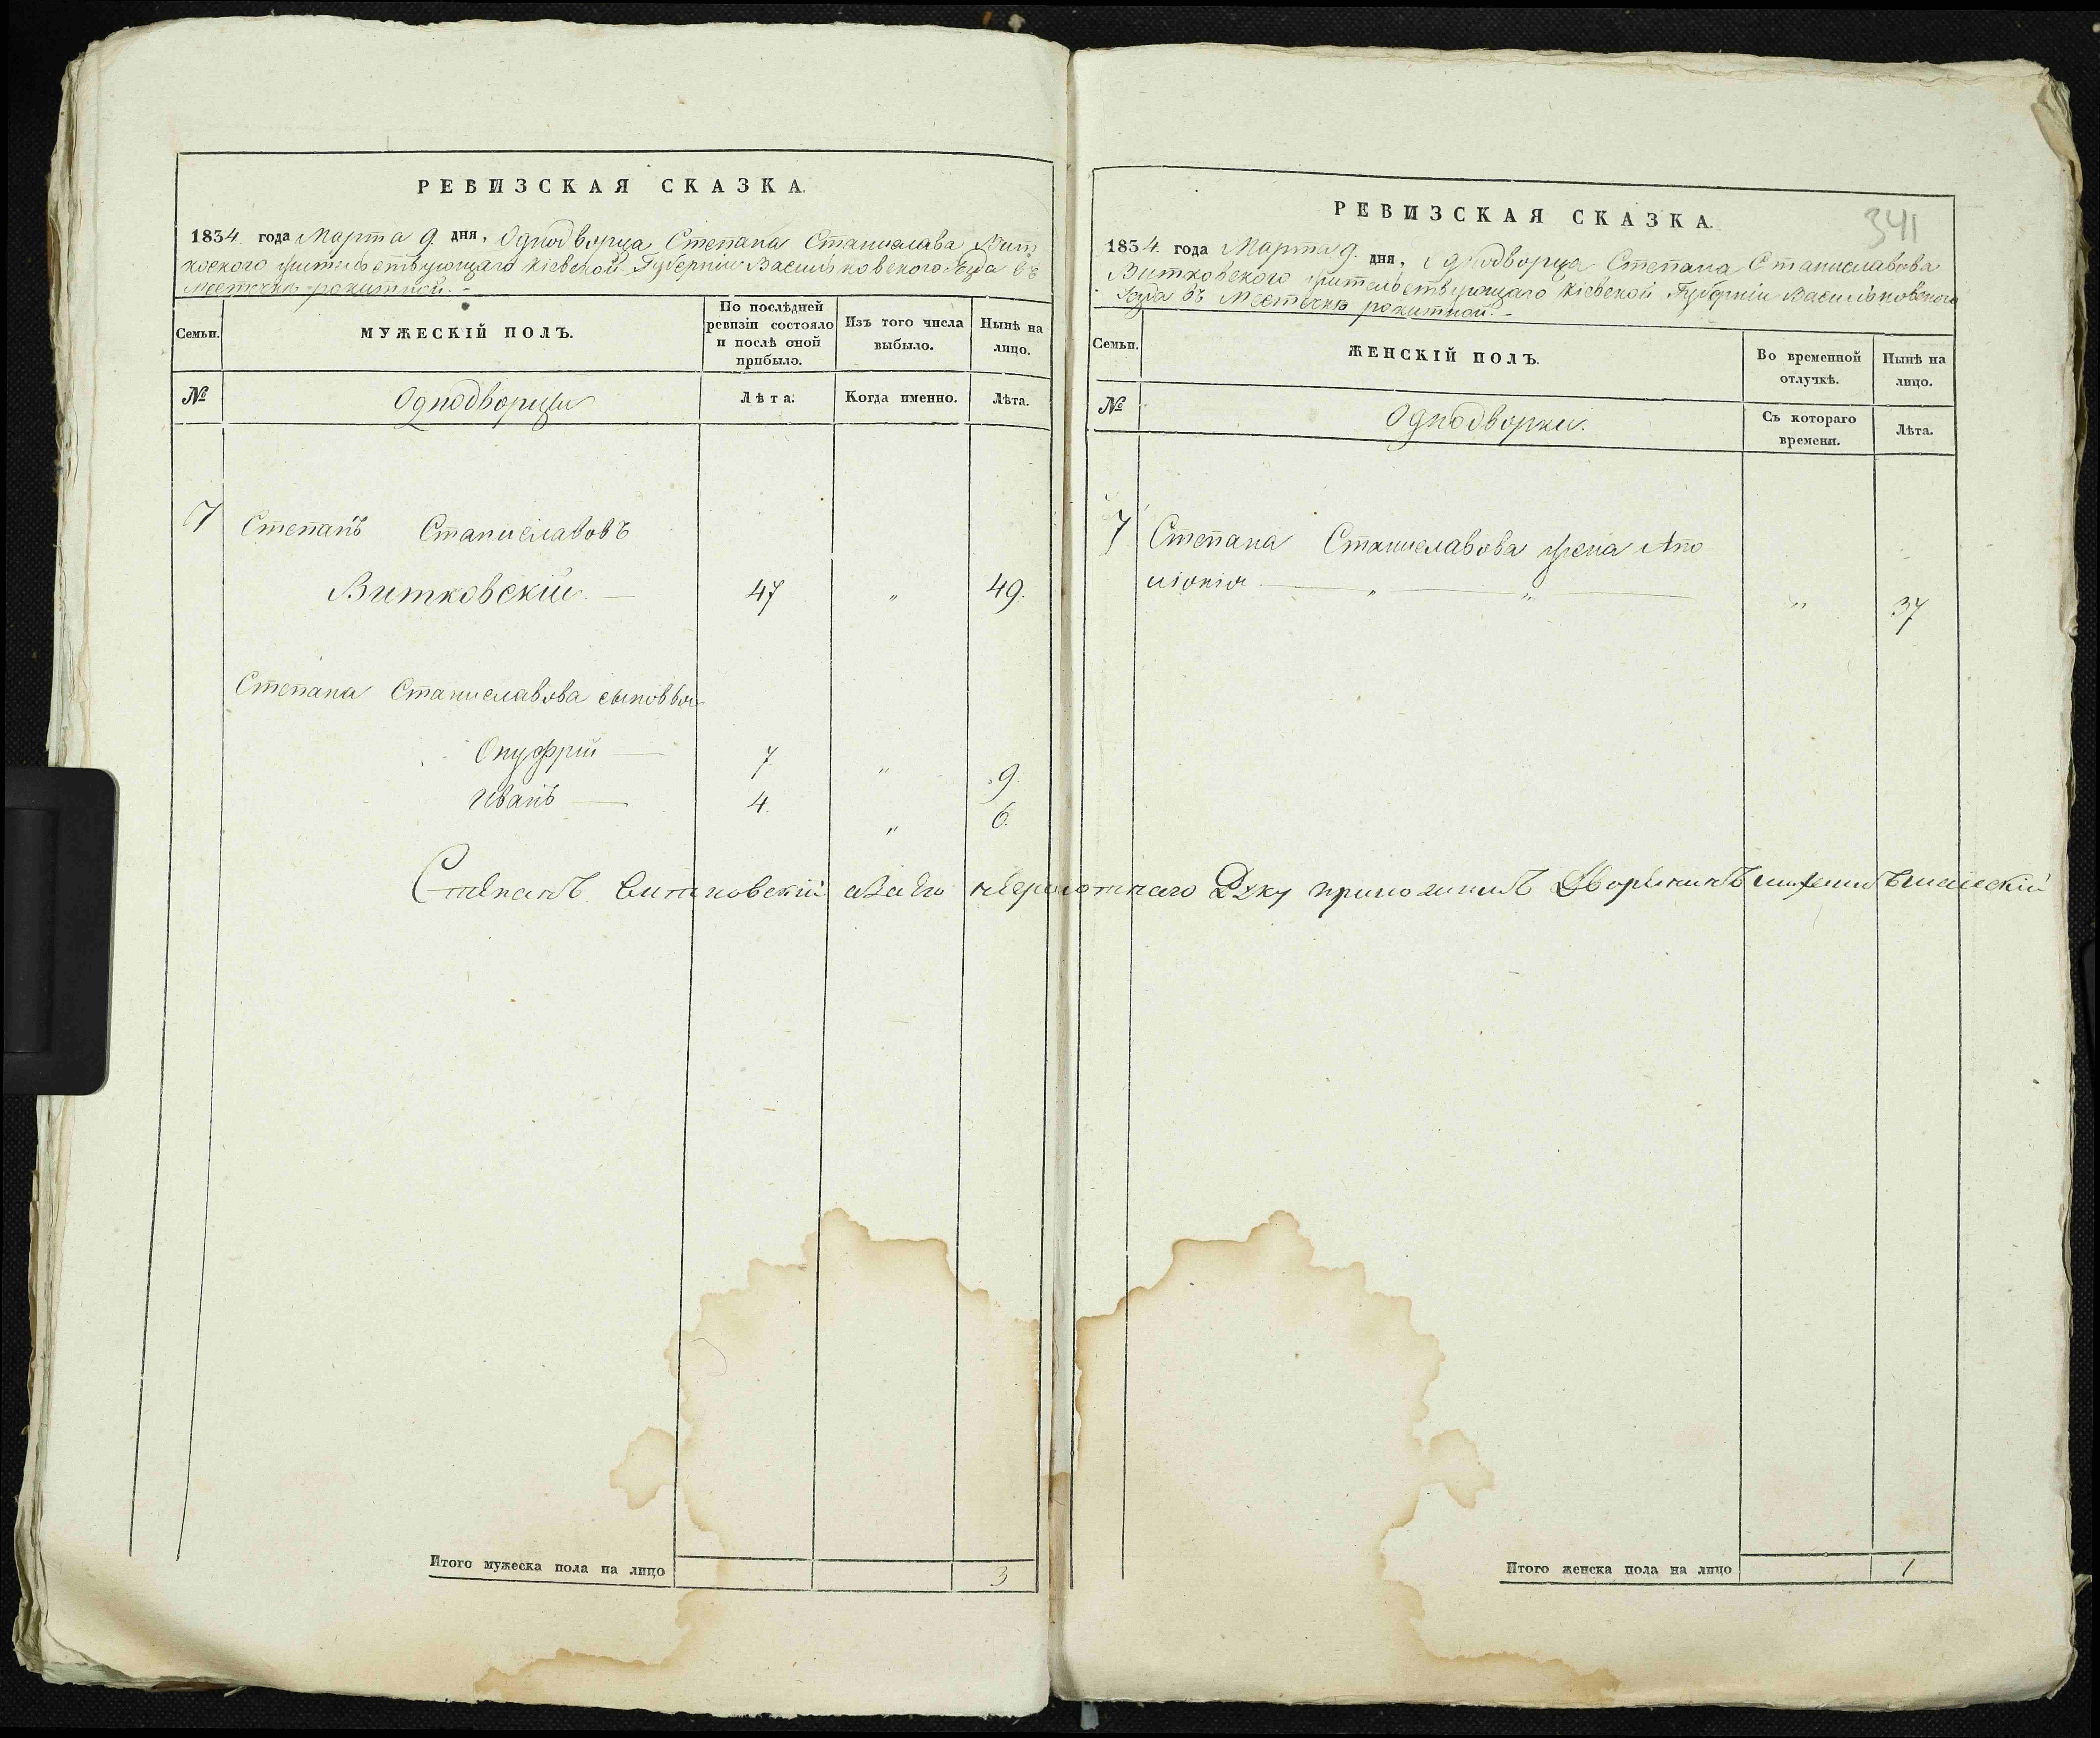 РЕВИЗСКАЯ СКАЗКА.
1834 года Марта 9 дня, Однодворца Степана Станислава Вит
коского жительствующаго Кіевской Губерніи Васильковского Уезда въ
Местечке рокитной.
Семьи.
МУЖЕСКІЙ ПОЛЪ.
По послѣдней
ревизіи состояло
и послѣ оной
прибыло.
Изъ того числа
выбыло.
Нынѣ на
лицо.
№
Однодворцы
Лѣта.
Когда именно.
Лѣта.
7 Степанъ Станиславовъ
Витковскій 47 " 49.
Степана Станиславова сыновья
Онуфрій 7 " 9.
Иванъ 4. " 6.
Степанъ Витковскій а за его неграмотнаго Руку приложилъ Дворянинъ
Итого мужеска пола на лицо 3
341
РЕВИЗСКАЯ СКАЗКА.
1834. года Марта 9. дня, Однодворца Степана Станиславова
Витковского жительствующаго Кіевской Губерніи Васильковского
Уезда въ Местечке рокитной.
Семьи.
ЖЕНСКІЙ ПОЛЪ.
Во временной
отлучкѣ.
Нынѣ на
лицо.
№
Однодворки.
Съ котораго
времени.
Лѣта.
7 Степана Станиславова жена Апо
лонія " " " 37
Итого женска пола на лицо 1